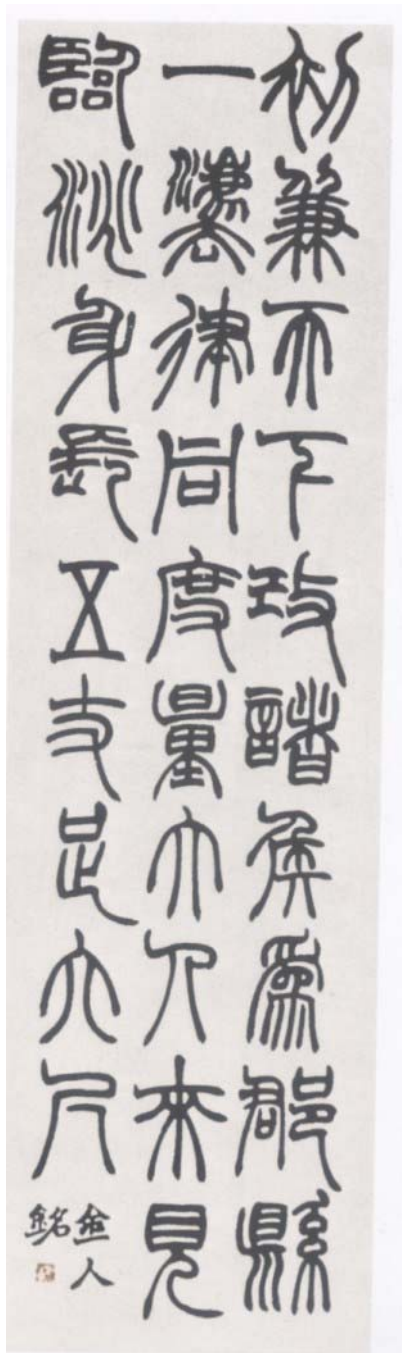 初兼天下改諸侯為郡縣
一灋律同度量大人來見
臨洮身長五丈足六尺
金人
銘